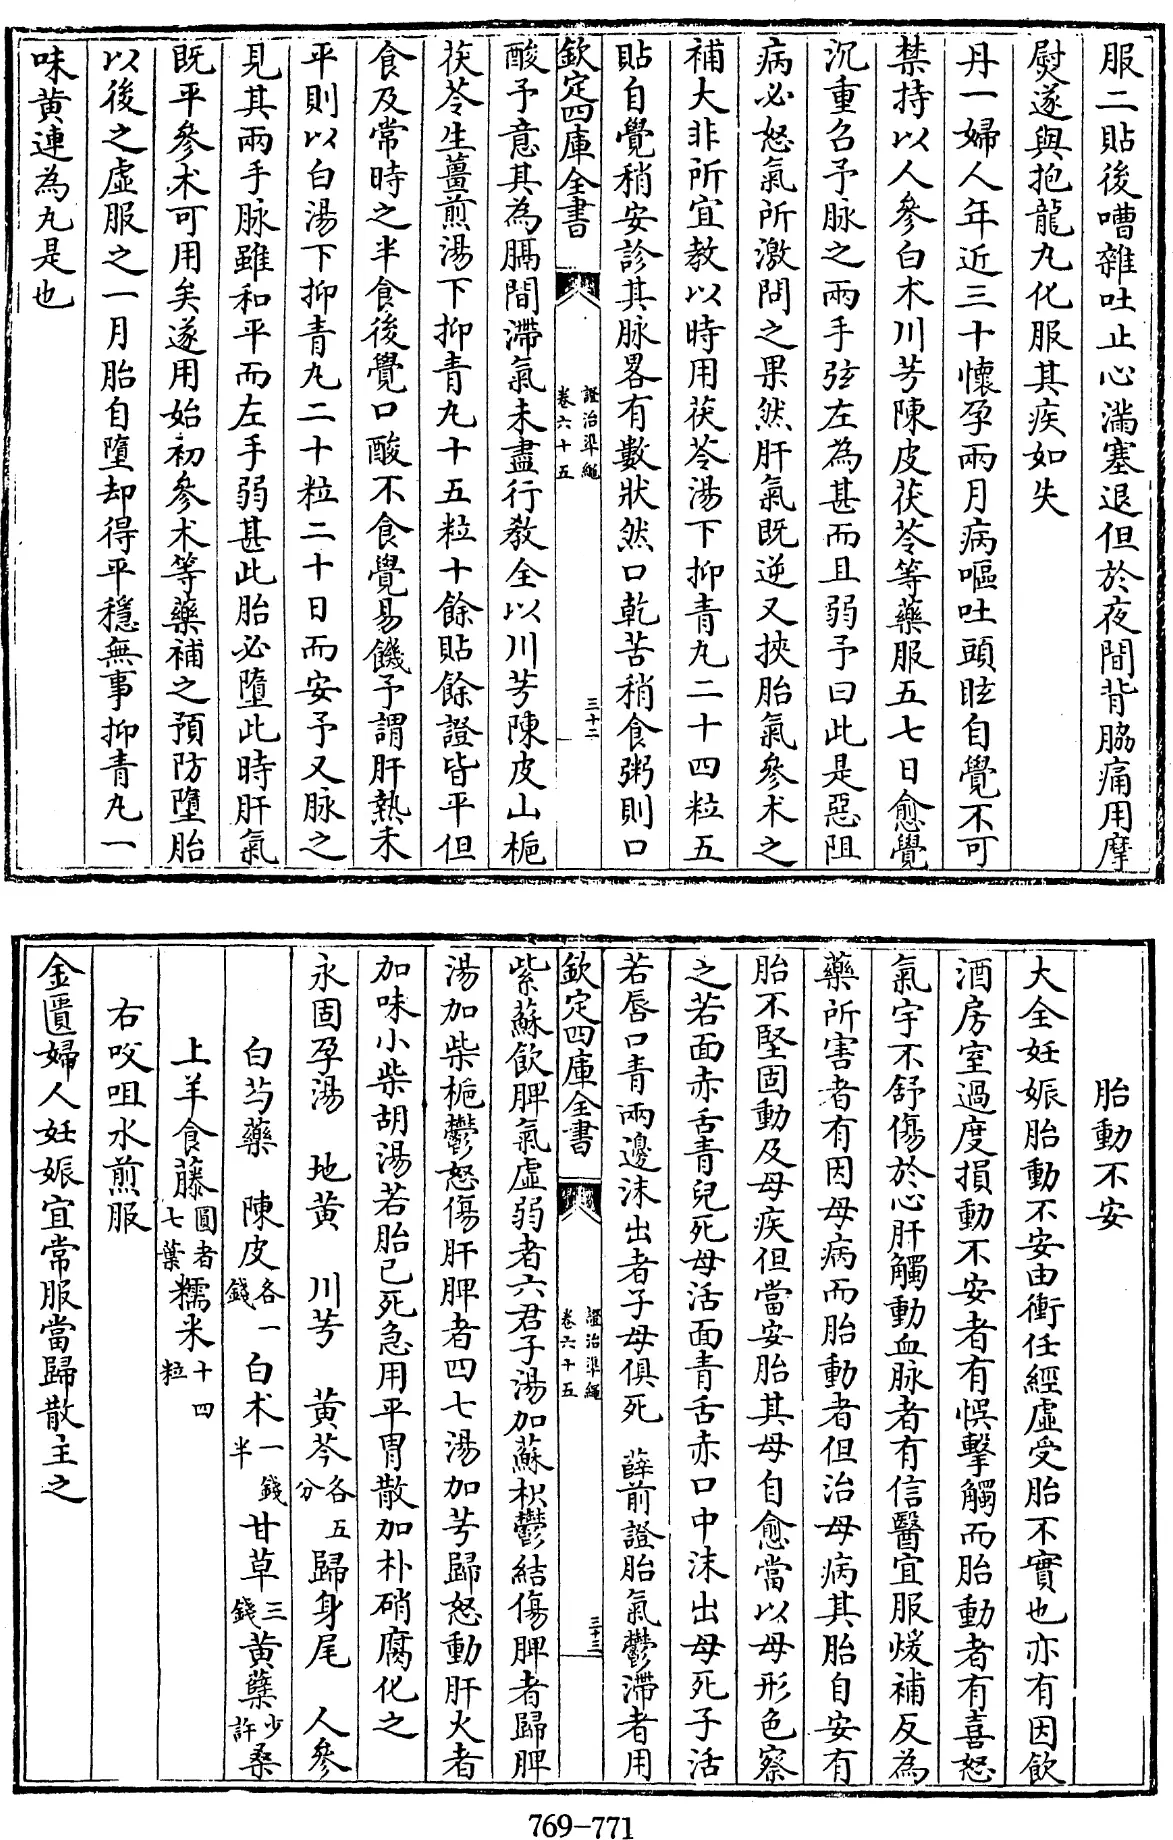 服二貼後嘈雜吐止心滿塞退但於夜間背脇痛用摩
熨遂與抱龍丸化服其疾如失
丹一婦人年近三十懷孕兩月病嘔吐頭眩自覺不可
禁持以人參白术川芎陳皮茯苓等藥服五七日愈覺
沉重召予脉之兩手弦左為甚而且弱予曰此是惡阻
病必怒氣所激問之果然肝氣既逆又挾胎氣參术之
補大非所宜教以時用茯苓湯下抑青丸二十四粒五
貼自覺稍安診其脉畧有數狀然口乾苦稍食粥則口
欽定四庫全書
證治準繩
卷六十五
三十二
酸予意其為膈間滯氣未盡行教全以川芎陳皮山梔
茯苓生薑煎湯下抑青丸十五粒十餘貼餘證皆平但
食及常時之半食後覺口酸不食覺易饑予謂肝熱未
平則以白湯下抑青丸二十粒二十日而安予又脉之
見其兩手脉雖和平而左手弱甚此胎必墮此時肝氣
既平參术可用矣遂用始初參术等藥補之預防墮胎
以後之虛服之一月胎自墮却得平穩無事抑青丸一
味黃連為丸是也
胎動不安
大全妊娠胎動不安由衝任經虛受胎不實也亦有因飲
酒房室過度損動不安者有悞擊觸而胎動者有喜怒
氣宇不舒傷於心肝觸動血脉者有信醫宜服煖補反為
藥所害者有因母病而胎動者但治母病其胎自安有
胎不堅固動及母疾但當安胎其母自愈當以母形色察
之若面赤舌青兒死母活面青舌赤口中沫出母死子活
若唇口青兩邊沫出者子母俱死　薛前證胎氣鬱滯者用
欽定四庫全書
證治準繩
卷六十五
三十三
紫蘇飲脾氣虛弱者六君子湯加蘇枳鬱結傷脾者歸脾
湯加柴梔鬱怒傷肝脾者四七湯加芎歸怒動肝火者
加味小柴胡湯若胎已死急用平胃散加朴硝腐化之
永固孕湯　地黃　川芎　黃芩各五分歸身尾　人參
白芍藥　陳皮各一錢白术一錢半甘草三錢黃蘗少許桑
上羊食藤圓者七葉糯米十四粒
右㕮咀水煎服
金匱婦人妊娠宜常服當歸散主之
769-771